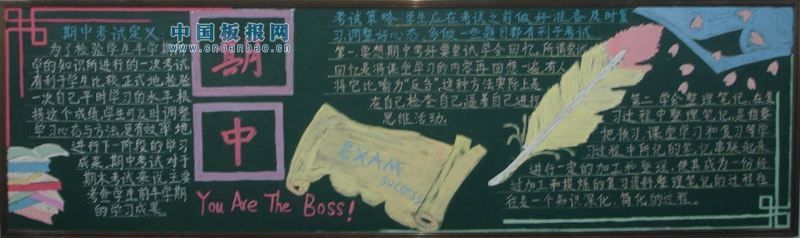 中国板报网
www.cnbanbao.cn
期中考试定义:
为了检验学生半学期
学的知识所进行的一次考试
有利于学生比较正式地检验
一次自己平时学习的水平根
据这个成绩,学生可及时调整
学习心态与方法,更有效率地
进行下一阶段的学习
成果。期中考试对于
期末考试来说主要
考查学生前半学期
的学习成果。
期
中
You Are The Boss!
EXAM
success
考试策略:学生应在考试之前做好准备及时复
习,调整好心态,多做一些题目都有利于考试。
第一,要想期中考好要尝试学会回忆,所谓尝试
回忆是将课堂学习的内容再回想一遍,有人
将它比喻为“反刍”,这种方法实际上是
在自己检查自己,逼着自己进行
思维活动。
第二,学会整理笔记,在复
习过程中整理笔记,是指要
把预习,课堂学习和复习等学
习过程中所记的笔记串联起来
进行一定的加工和整理,使其成为一份经
过加工和提炼的复习资料整理笔记的过程往
往是一个知识深化,简化的过程。